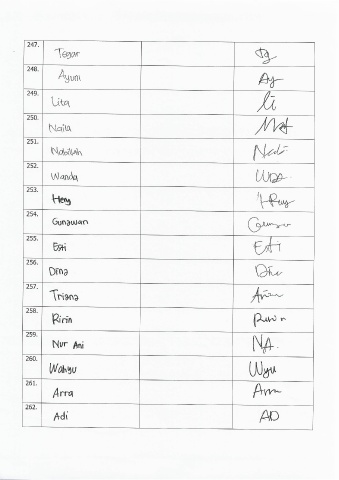 247. Tegar Tg
248. Ayum Ay
249. Lita li
250. Naila
251. Nabilah Nabi
252. Wanda WDA
253. Heny
254. Gunawan
255. Esti ESTI
256. Dina
257. Triana
258. Ririn
259. Nur Ani NA.
260. Wahyu Wyu
261. Arra
262. Adi AD